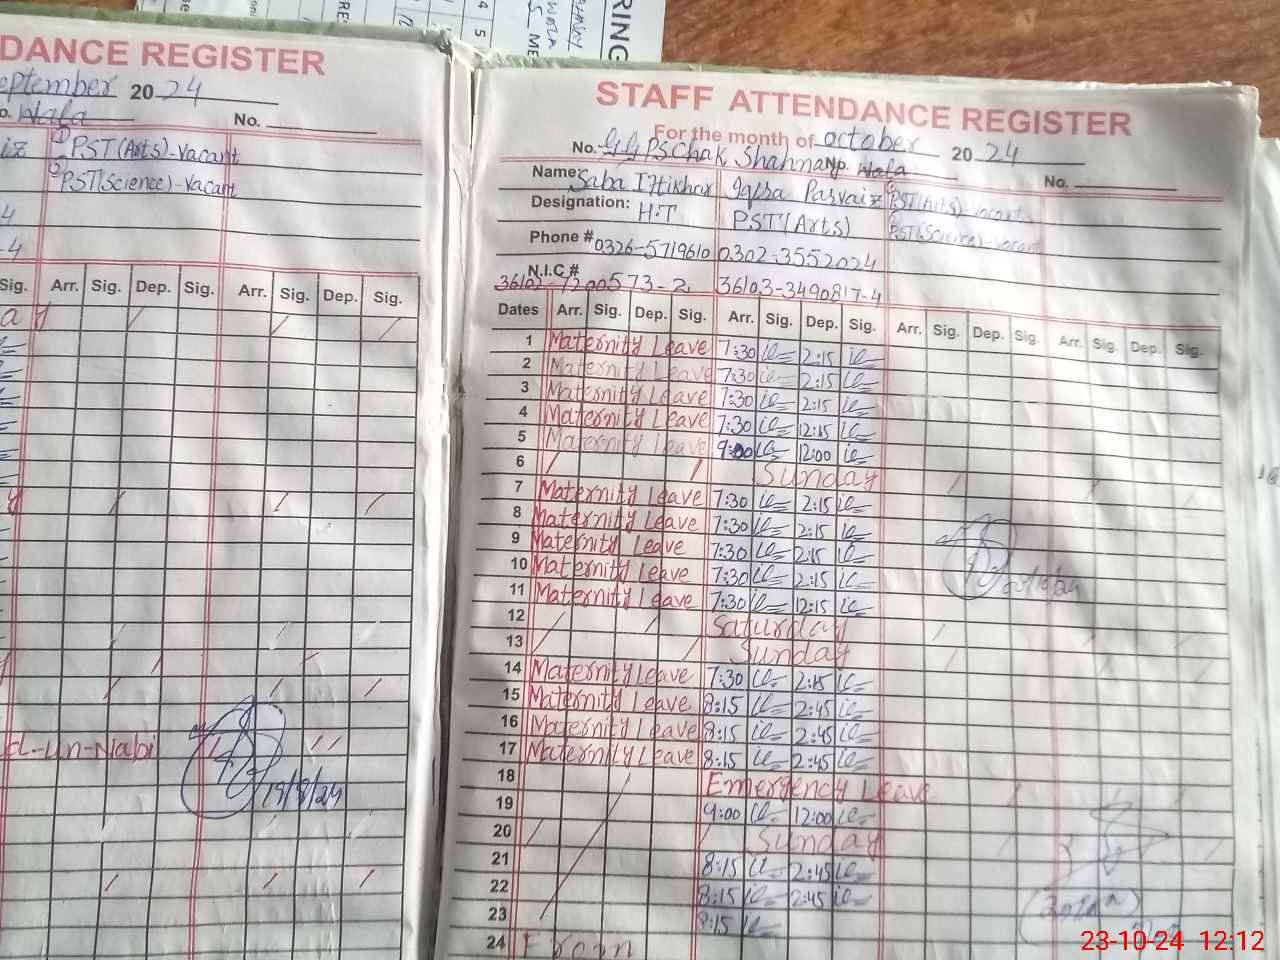 RING
DANCE REGISTER
eptember 2024
o. Wala No.
iz ① PST(Arts)-Vacant
② PST(Science)-Vacant
4
-4
Sig. Arr. Sig. Dep. Sig. Arr. Sig. Dep. Sig.
a y
y
d-un-Nabi
STAFF ATTENDANCE REGISTER
For the month of october 2024
No. GGPS Chak Shahna No. Wala No.
Name: Saba Iftikhar Iqra Parvaiz PST(Arts)-Vacant
Designation: H.T PST(Arts) PST(Science)-Vacant
Phone # 0326-5719610 0302-3552024
N.I.C.# 36102-7200573-2 36103-3490817-4
Dates Arr. Sig. Dep. Sig. Arr. Sig. Dep. Sig. Arr. Sig. Dep. Sig. Arr. Sig. Dep. Sig.
1 Maternity Leave 7:30 2:15
2 Maternity Leave 7:30 2:15
3 Maternity Leave 7:30 2:15
4 Maternity Leave 7:30 12:15
5 Maternity Leave 9:00 12:00
6 Sunday
7 Maternity Leave 7:30 2:15
8 Maternity Leave 7:30 2:15
9 Maternity Leave 7:30 2:15
10 Maternity Leave 7:30 2:15
11 Maternity Leave 7:30 12:15
12 Saturday
13 Sunday
14 Maternity Leave 7:30 2:15
15 Maternity Leave 8:15 2:45
16 Maternity Leave 8:15 2:45
17 Maternity Leave 8:15 2:45
18 Emergency Leave
19 9:00 12:00
20 Sunday
21 8:15 2:45
22 8:15 2:45
23 8:15
24
23-10-24 12:12